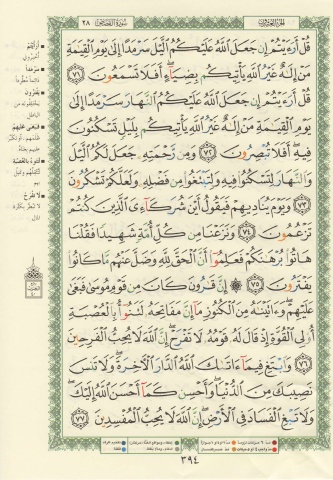 الجزء العشرون
سورة القصص ٢٨
قُلْ أَرَءَيْتُمْ إِن جَعَلَ ٱللَّهُ عَلَيْكُمُ ٱلَّيْلَ سَرْمَدًا إِلَىٰ يَوْمِ ٱلْقِيَٰمَةِ
مَنْ إِلَٰهٌ غَيْرُ ٱللَّهِ يَأْتِيكُم بِضِيَآءٍ أَفَلَا تَسْمَعُونَ ﴿٧١﴾
قُلْ أَرَءَيْتُمْ إِن جَعَلَ ٱللَّهُ عَلَيْكُمُ ٱلنَّهَارَ سَرْمَدًا إِلَىٰ
يَوْمِ ٱلْقِيَٰمَةِ مَنْ إِلَٰهٌ غَيْرُ ٱللَّهِ يَأْتِيكُم بِلَيْلٍ تَسْكُنُونَ
فِيهِ أَفَلَا تُبْصِرُونَ ﴿٧٢﴾ وَمِن رَّحْمَتِهِۦ جَعَلَ لَكُمُ ٱلَّيْلَ
وَٱلنَّهَارَ لِتَسْكُنُوا۟ فِيهِ وَلِتَبْتَغُوا۟ مِن فَضْلِهِۦ وَلَعَلَّكُمْ تَشْكُرُونَ
﴿٧٣﴾ وَيَوْمَ يُنَادِيهِمْ فَيَقُولُ أَيْنَ شُرَكَآءِىَ ٱلَّذِينَ كُنتُمْ
تَزْعُمُونَ ﴿٧٤﴾ وَنَزَعْنَا مِن كُلِّ أُمَّةٍ شَهِيدًا فَقُلْنَا
هَاتُوا۟ بُرْهَٰنَكُمْ فَعَلِمُوٓا۟ أَنَّ ٱلْحَقَّ لِلَّهِ وَضَلَّ عَنْهُم مَّا كَانُوا۟
يَفْتَرُونَ ﴿٧٥﴾ ۞ إِنَّ قَٰرُونَ كَانَ مِن قَوْمِ مُوسَىٰ فَبَغَىٰ
عَلَيْهِمْ وَءَاتَيْنَٰهُ مِنَ ٱلْكُنُوزِ مَآ إِنَّ مَفَاتِحَهُۥ لَتَنُوٓأُ بِٱلْعُصْبَةِ
أُو۟لِى ٱلْقُوَّةِ إِذْ قَالَ لَهُۥ قَوْمُهُۥ لَا تَفْرَحْ إِنَّ ٱللَّهَ لَا يُحِبُّ ٱلْفَرِحِينَ
﴿٧٦﴾ وَٱبْتَغِ فِيمَآ ءَاتَىٰكَ ٱللَّهُ ٱلدَّارَ ٱلْـَٔاخِرَةَ وَلَا تَنسَ
نَصِيبَكَ مِنَ ٱلدُّنْيَا وَأَحْسِن كَمَآ أَحْسَنَ ٱللَّهُ إِلَيْكَ
وَلَا تَبْغِ ٱلْفَسَادَ فِى ٱلْأَرْضِ إِنَّ ٱللَّهَ لَا يُحِبُّ ٱلْمُفْسِدِينَ ﴿٧٧﴾
أرأيتم
أخبروني
سرمداً
يفترون
فبغى عليهم
لتنوء بالعصبة
لا تفرح
٣٩٤